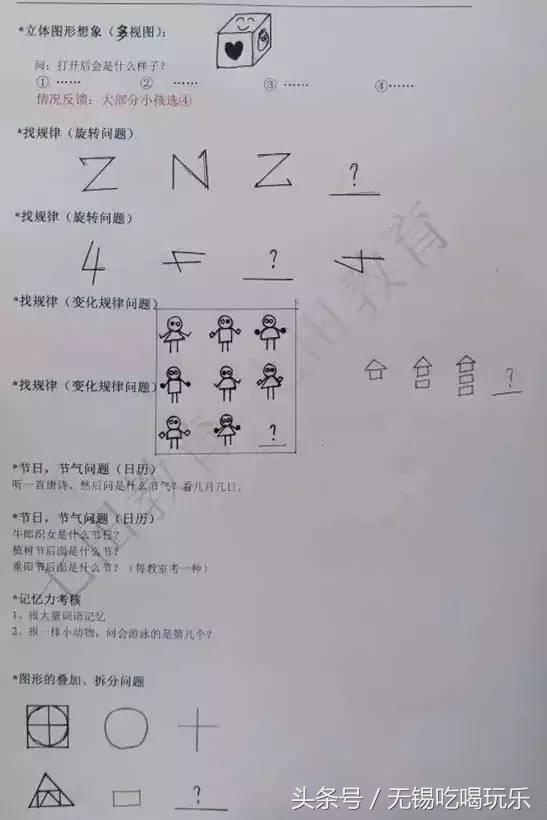 *立体图形想象（多视图）:
问：打开后会是什么样子？
① …… ② …… ③ …… ④……
情况反馈：大部分小孩选④
*找规律（旋转问题）
Z N Z ?
*找规律（旋转问题）
4 4 ? 4
*找规律（变化规律问题）
*找规律（变化规律问题）
?
?
*节日，节气问题（日历）
听一首唐诗，然后问是什么节气？看几月几日。
*节日，节气问题（日历）
牛郎织女是什么节日？
植树节后面是什么节？
重阳节后面是什么节？（每教室考一种）
*记忆力考核
1、报大量词语记忆
2、报一排小动物，问会游泳的是第几个？
*图形的叠加、拆分问题
?
七田教育
头条号 / 无锡吃喝玩乐